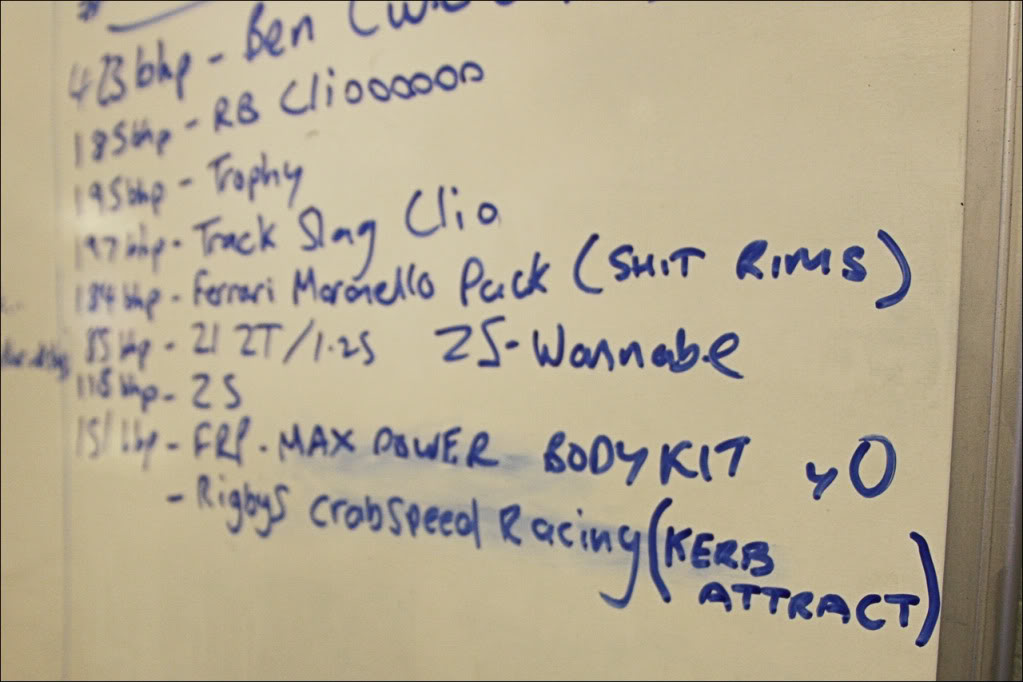 423bhp - Ben (
185bhp - RB Cliooooooo
195bhp - Trophy
197bhp - Track Slag Clio
184bhp - Ferrari Maranello Pack (SHIT RIMS)
85bhp - 21 2T/1.2S ZS-Wannabe
118bhp - ZS
151bhp - FRP - MAX POWER BODYKIT yO
- Rigbys crabspeed Racing (KERB
ATTRACT)